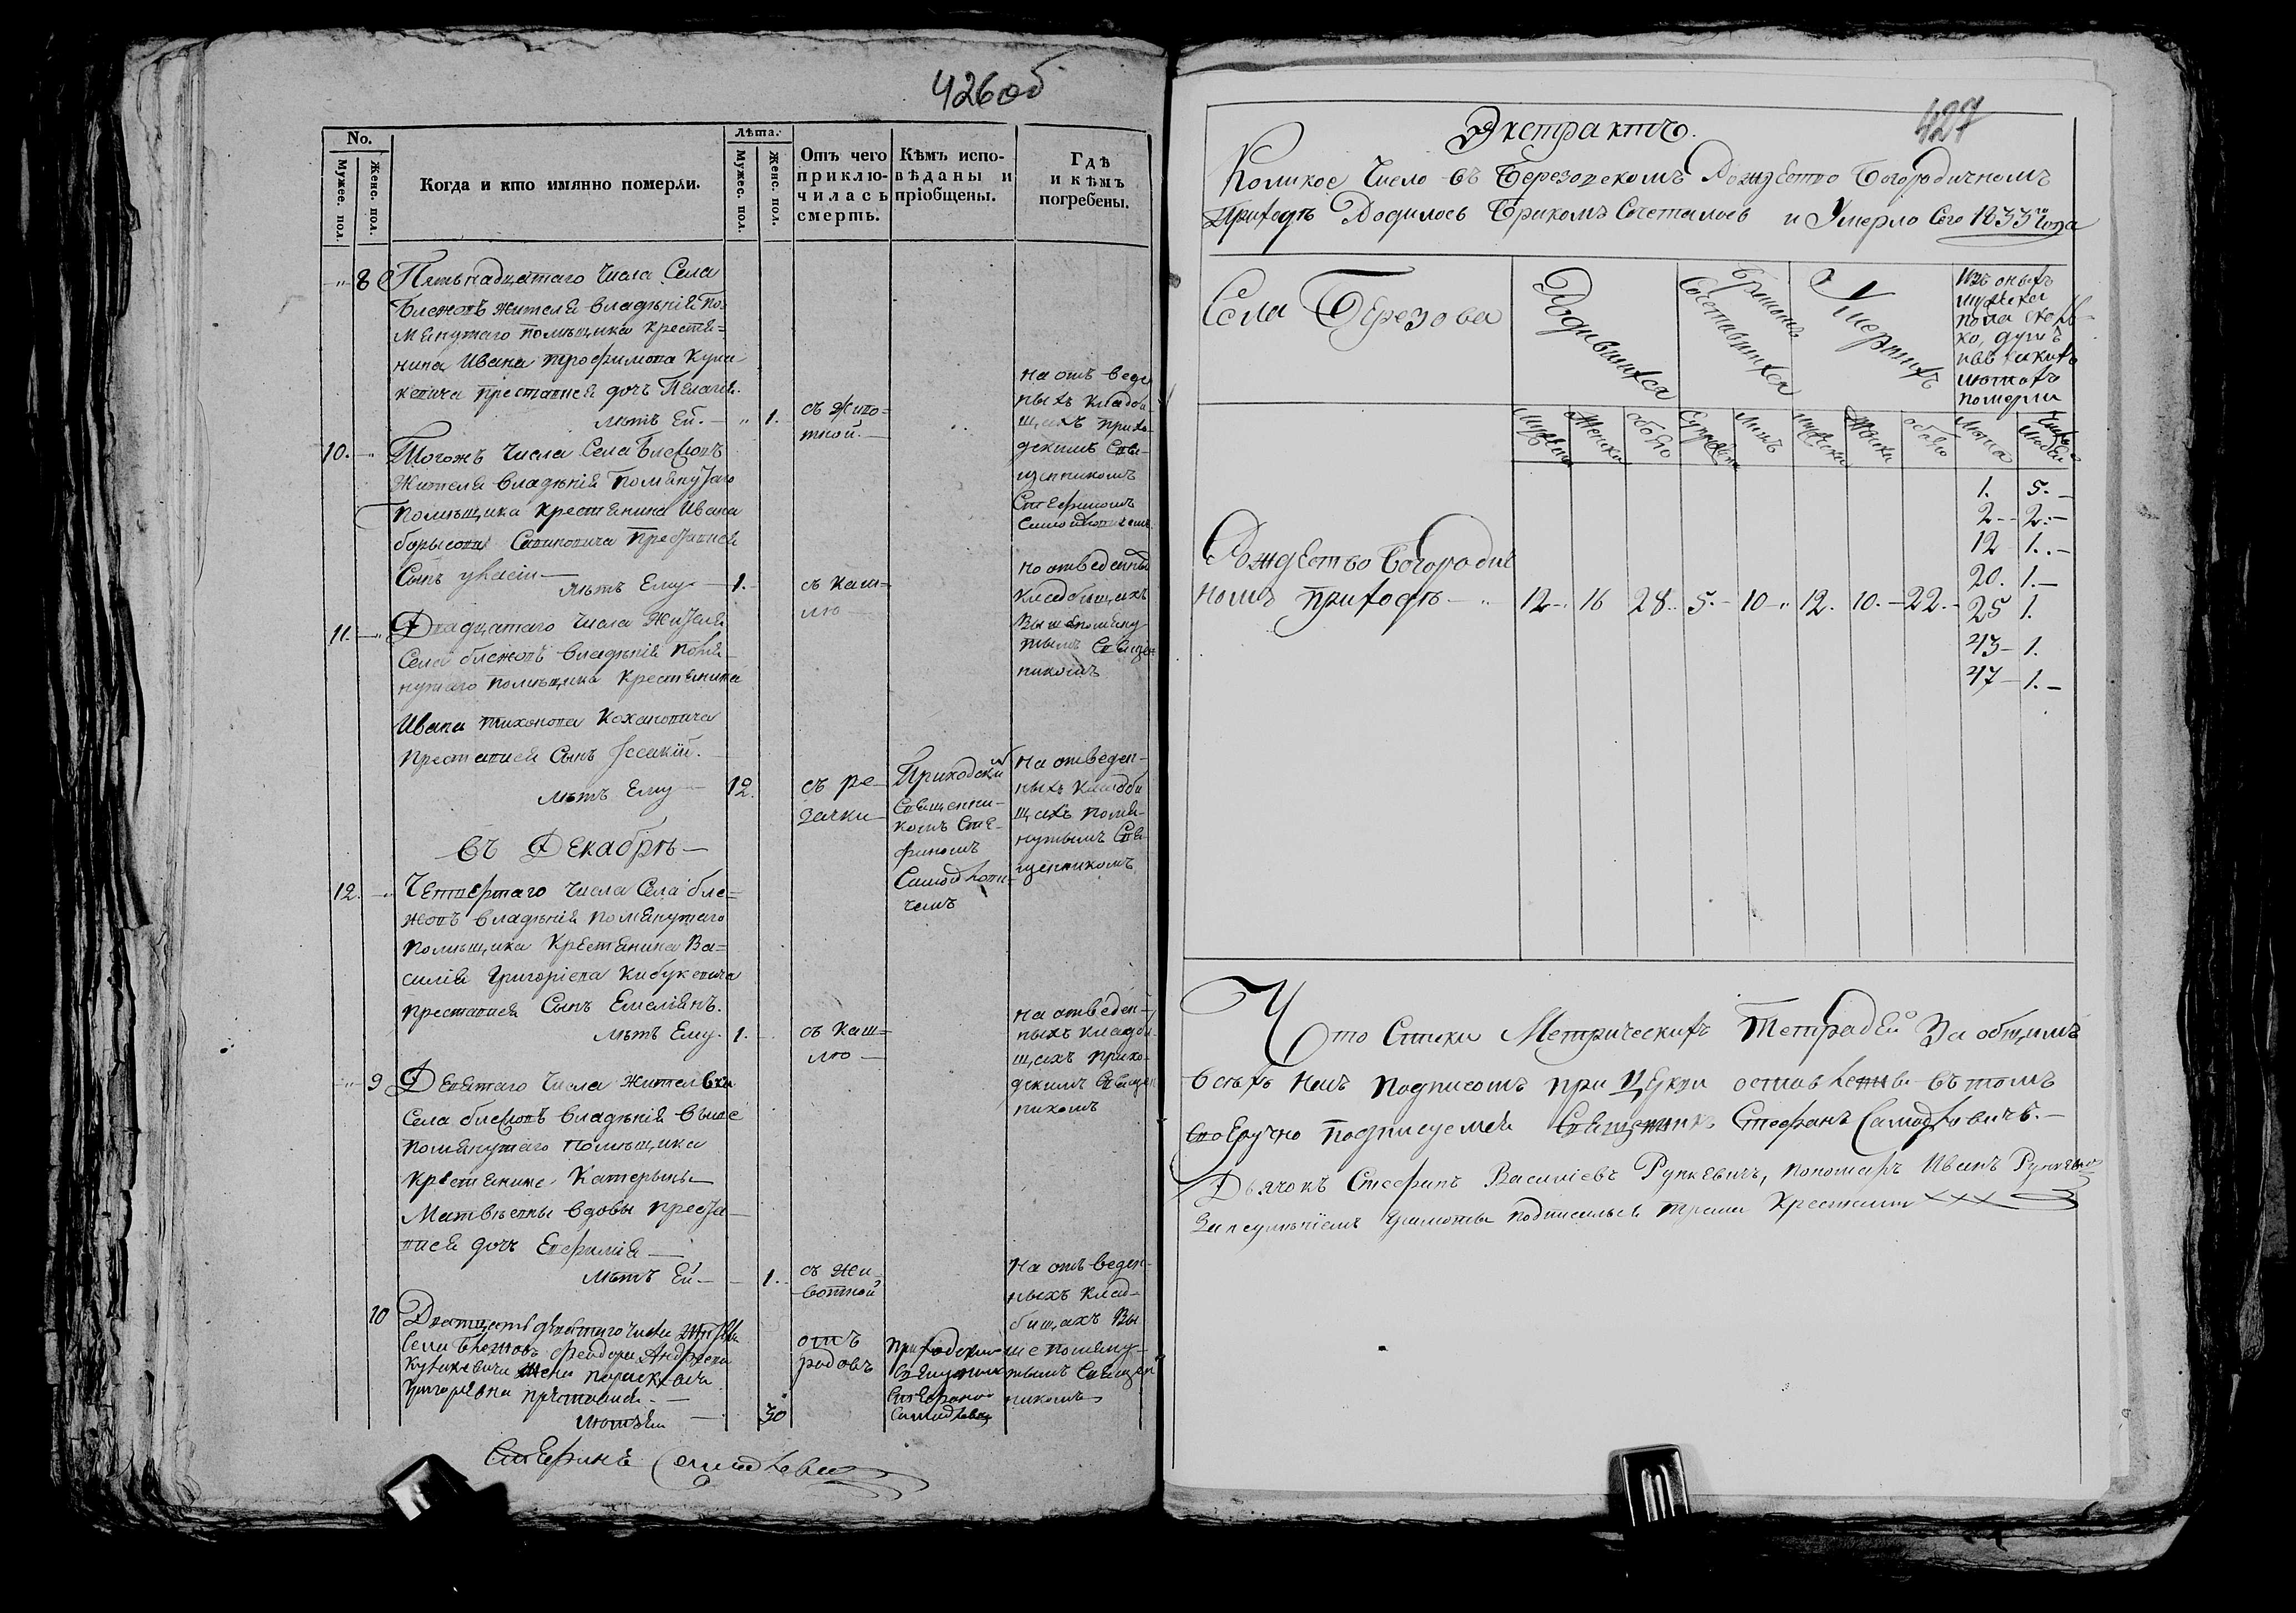 426об
No.
Мужес. пол.
Женс. пол.
Когда и кто имянно померли.
Лѣта.
Мужес. пол.
Женс. пол.
Отъ чего
приклю-
чилась
смерть.
Кѣмъ испо-
вѣданы и
пріобщены.
Гдѣ
и кѣмъ
погребены.
8 Пятьнадцатаго числа Села
Блежовъ жителя владѣнія По-
мянутаго помѣщика крестя-
нина Ивана Трофимова
преставися дочь Пелагія.
лѣтъ Ей. 1.
съ живо-
тной.
на отъведе
ныхъ кладби-
щахъ прихо-
дскимъ Свя-
щенникомъ
Стефаномъ
10. Тогожъ числа Села Блежовъ
Жителя владѣнія помянутаго
помѣщика крестянина Ивана
борисова преставися
Сынъ
лѣтъ Ему 1.
съ каш-
лю
на отведенныхъ
кладбищахъ
Вышепомяну-
тымъ Священ
никомъ
11. Двадцатаго числа жителя
Села блежовъ владѣнія помя-
нутаго помѣщика крестянина
Ивана тихонова Кохановича
преставися Сынъ Іссакій.
лѣтъ Ему 12.
съ ре-
зачки
Приходским
Священни-
комъ Сте-
фаномъ
Самойлови-
чемъ
на отведен-
ныхъ кладби
щахъ помя-
нутымъ Свя-
щенникомъ
въ Декабрѣ
12. Четвертаго числа Села бле-
жовъ владѣнія помянутаго
помѣщика крестянина Ва-
силія Григоріева
преставися Сынъ Емеліянъ.
лѣтъ Ему. 1.
съ каш-
лю
на отведен-
ныхъ кладби
щахъ прихо-
дскимъ Священ
никомъ
9 Девятаго числа жителька
Села блежовъ владѣнія выше
помянутаго помѣщика
крестянина Катерины
Матвѣевны вдовы преста-
вися дочь Евфимія
лѣтъ Ей 1.
съ жи-
вотной
на отъведен-
ныхъ клад-
бищахъ Вы
шепомяну-
тымъ Священ
никомъ
10 Двадцать девятаго числа
Села Блежовъ Феодора Андреева
жена параскевія
Григорѣвна преставися
лѣтъ Ей 30
отъ
родовъ
приходским
Священник
Стефаном
Стефанъ
427
Экстрактъ.
Коликое число въ Березовскомъ Рождество Богородичномъ
Приходѣ Родилось Бракомъ Сочеталось и Умерло Сего 1833го года
Села Березова
Родившихся
Бракомъ
Сочетавшихся
Умершихъ
Изъ оныхъ
мужеска
пола сколь-
ко душъ
въ какихъ
лѣтахъ
померли
мужеска
Женска
обоего
Супружествъ
Лицъ
мужеска
Женска
обоего
Лѣта
Число
людей
Рождество Богородич
номъ приходѣ 12 16 28 5 10 12. 10. 22.
1. 5.
2 2.
12 1.
20. 1.
25 1.
43 1.
47 1.
Что Стики Метрическихъ Тетрадей За общимъ
всѣхъ насъ подписомъ при Церкви оставлены въ томъ
Своеручно подписуемся Священникъ Стефанъ Самойловичъ.
Дьячокъ Стефанъ Василіевъ Рупкевичъ, пономарь Иванъ
За неумѣніемъ грамоты подписался трема Крестами ххх